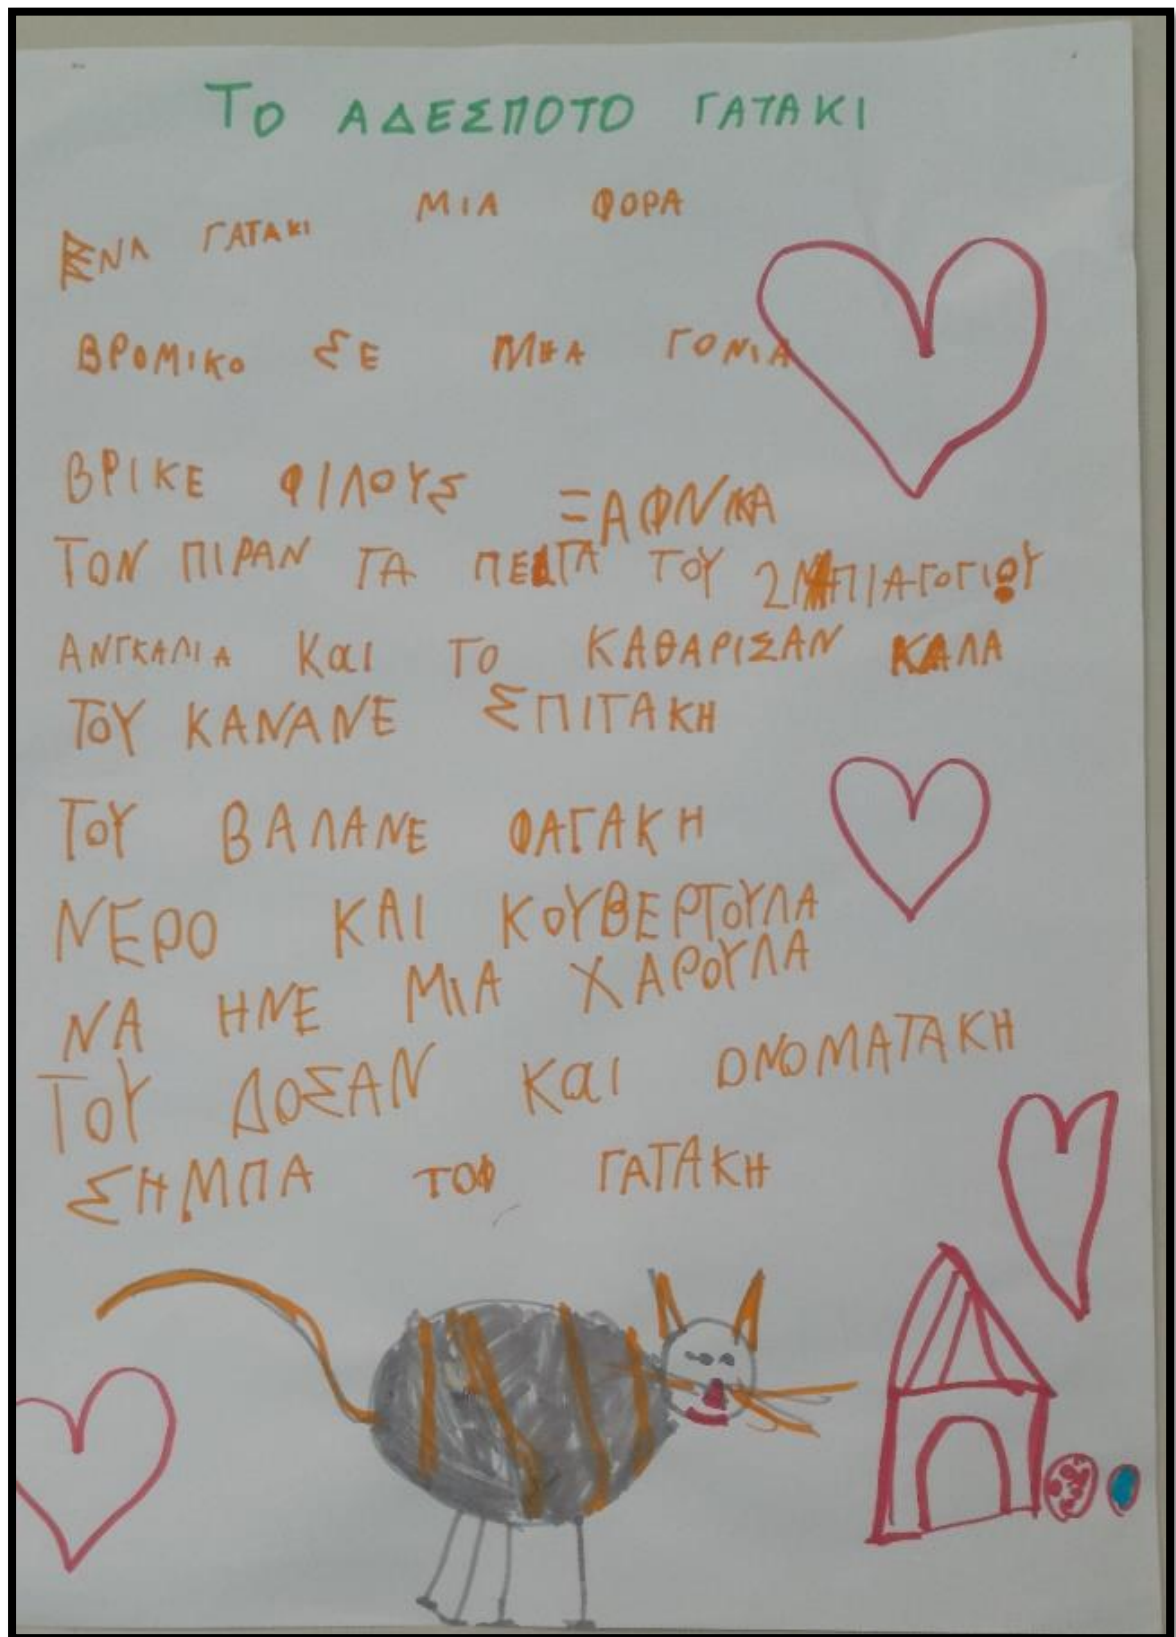 ΤΟ ΑΔΕΣΠΟΤΟ ΓΑΤΑΚΙ
ΕΝΑ ΓΑΤΑΚΙ ΜΙΑ ΦΟΡΑ
ΒΡΟΜΙΚΟ ΣΕ ΜΗΑ ΓΟΝΙΑ
ΒΡΙΚΕ ΦΙΛΟΥΣ ΞΑΦΝΙΚΑ
ΤΟΝ ΠΙΡΑΝ ΤΑ ΤΟΥ
ΑΝΓΚΑΛΙΑ ΚαΙ ΤΟ ΚΑΘΑΡΙΣΑΝ ΚΑΛΑ
ΤΟΥ ΚΑΝΑΝΕ ΣΠΙΤΑΚΗ
ΤΟΥ ΒΑΛΑΝΕ ΦΑΓΑΚΗ
ΝΕΡΟ ΚΑΙ ΚΟΥΒΕΡΤΟΥΛΑ
ΝΑ ΗΝΕ ΜΙΑ ΧΑΡΟΥΛΑ
ΤΟΥ ΔΟΣΑΝ ΚαΙ ΟΝΟΜΑΤΑΚΗ
ΣΗΜΠΑ ΤΟ ΓΑΤΑΚΗ